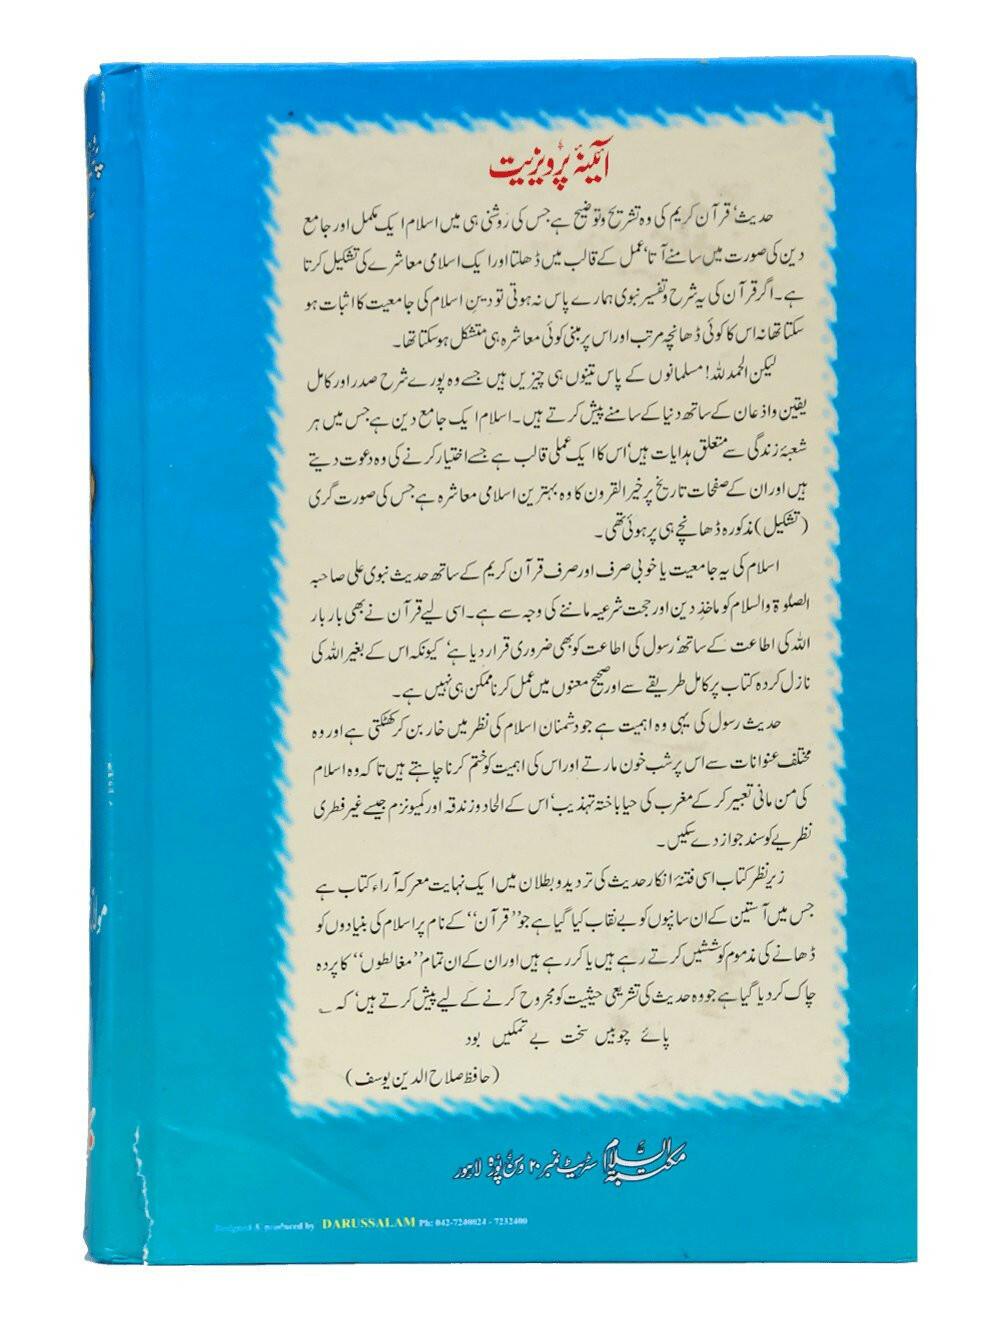 آئینۂ پرویزیت
حدیث‘ قرآن کریم کی وہ تشریح وتوضیح ہے جس کی روشنی ہی میں اسلام ایک مکمل اور جامع
دین کی صورت میں سامنے آتا‘ عمل کے قالب میں ڈھلتا اور ایک اسلامی معاشرے کی تشکیل کرتا
ہے۔ اگر قرآن کی یہ شرح وتفسیر نبوی ہمارے پاس نہ ہوتی تو دینِ اسلام کی جامعیت کا اثبات ہو
سکتا تھا نہ اس کا کوئی ڈھانچہ مرتب اور اس پر مبنی کوئی معاشرہ ہی متشکل ہو سکتا تھا۔
لیکن الحمدللہ! مسلمانوں کے پاس تینوں ہی چیزیں ہیں جسے وہ پورے شرح صدر اور کامل
یقین واذعان کے ساتھ دنیا کے سامنے پیش کرتے ہیں۔ اسلام ایک جامع دین ہے جس میں ہر
شعبۂ زندگی سے متعلق ہدایات ہیں‘ اس کا ایک عملی قالب ہے جسے اختیار کرنے کی وہ دعوت دیتے
ہیں اور ان کے صفحات تاریخ پر خیر القرون کا وہ بہترین اسلامی معاشرہ ہے جس کی صورت گری
(تشکیل) مذکورہ ڈھانچے ہی پر ہوئی تھی۔
اسلام کی یہ جامعیت یا خوبی صرف اور صرف قرآن کریم کے ساتھ حدیث نبوی علی صاحبہ
الصلوٰۃ والسلام کو ماخذِ دین اور حجت شرعیہ ماننے کی وجہ سے ہے۔ اسی لیے قرآن نے بھی بار بار
اللہ کی اطاعت کے ساتھ‘ رسول کی اطاعت کو بھی ضروری قرار دیا ہے‘ کیونکہ اس کے بغیر اللہ کی
نازل کردہ کتاب پر کامل طریقے سے اور صحیح معنوں میں عمل کرنا ممکن ہی نہیں ہے۔
حدیث رسول کی یہی وہ اہمیت ہے جو دشمنان اسلام کی نظر میں خار بن کر کھٹکتی ہے اور وہ
مختلف عنوانات سے اس پر شب خون مارتے اور اس کی اہمیت کو ختم کرنا چاہتے ہیں تا کہ وہ اسلام
کی من مانی تعبیر کر کے مغرب کی حیا باختہ تہذیب‘ اس کے الحاد وزندقہ اور کمیونزم جیسے غیر فطری
نظریے کو سند جواز دے سکیں۔
زیر نظر کتاب اسی فتنۂ انکار حدیث کی تردید وبطلان میں ایک نہایت معرکہ آراء کتاب ہے
جس میں آستین کے ان سانپوں کو بے نقاب کیا گیا ہے جو ’’قرآن‘‘ کے نام پر اسلام کی بنیادوں کو
ڈھانے کی مذموم کوششیں کرتے رہے ہیں یا کر رہے ہیں اور ان کے ان تمام ’’مغالطوں‘‘ کا پردہ
چاک کر دیا گیا ہے جو وہ حدیث کی تشریعی حیثیت کو مجروح کرنے کے لیے پیش کرتے ہیں‘ کہ ؎
پائے چوبیں سخت بے تمکیں بود
(حافظ صلاح الدین یوسف)
مکتبۃ السلام سٹریٹ نمبر ۲۰ وسن پورہ لاہور
Designed & produced by DARUSSALAM Ph: 042-7240024 - 7232400